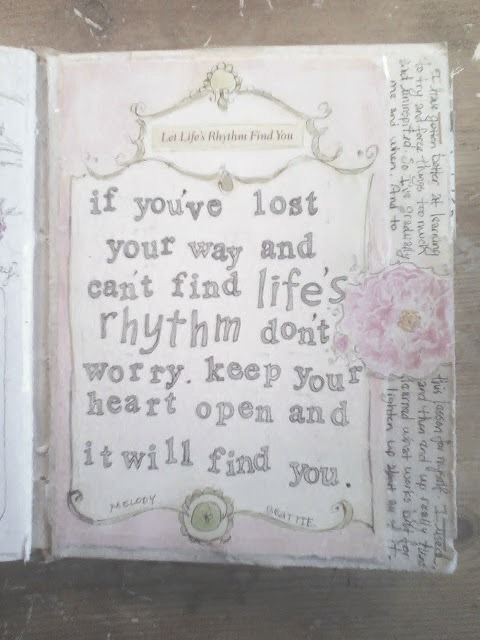 Let Life's Rhythm Find You
if you've lost
your way and
can't find life's
rhythm don't
worry. keep your
heart open and
it will find you.
MELODY BEATTIE
I have grown better at learning
to try and force things too much
me and when. And to
this lesson for myself. I
and then and
what works best for
lighten up